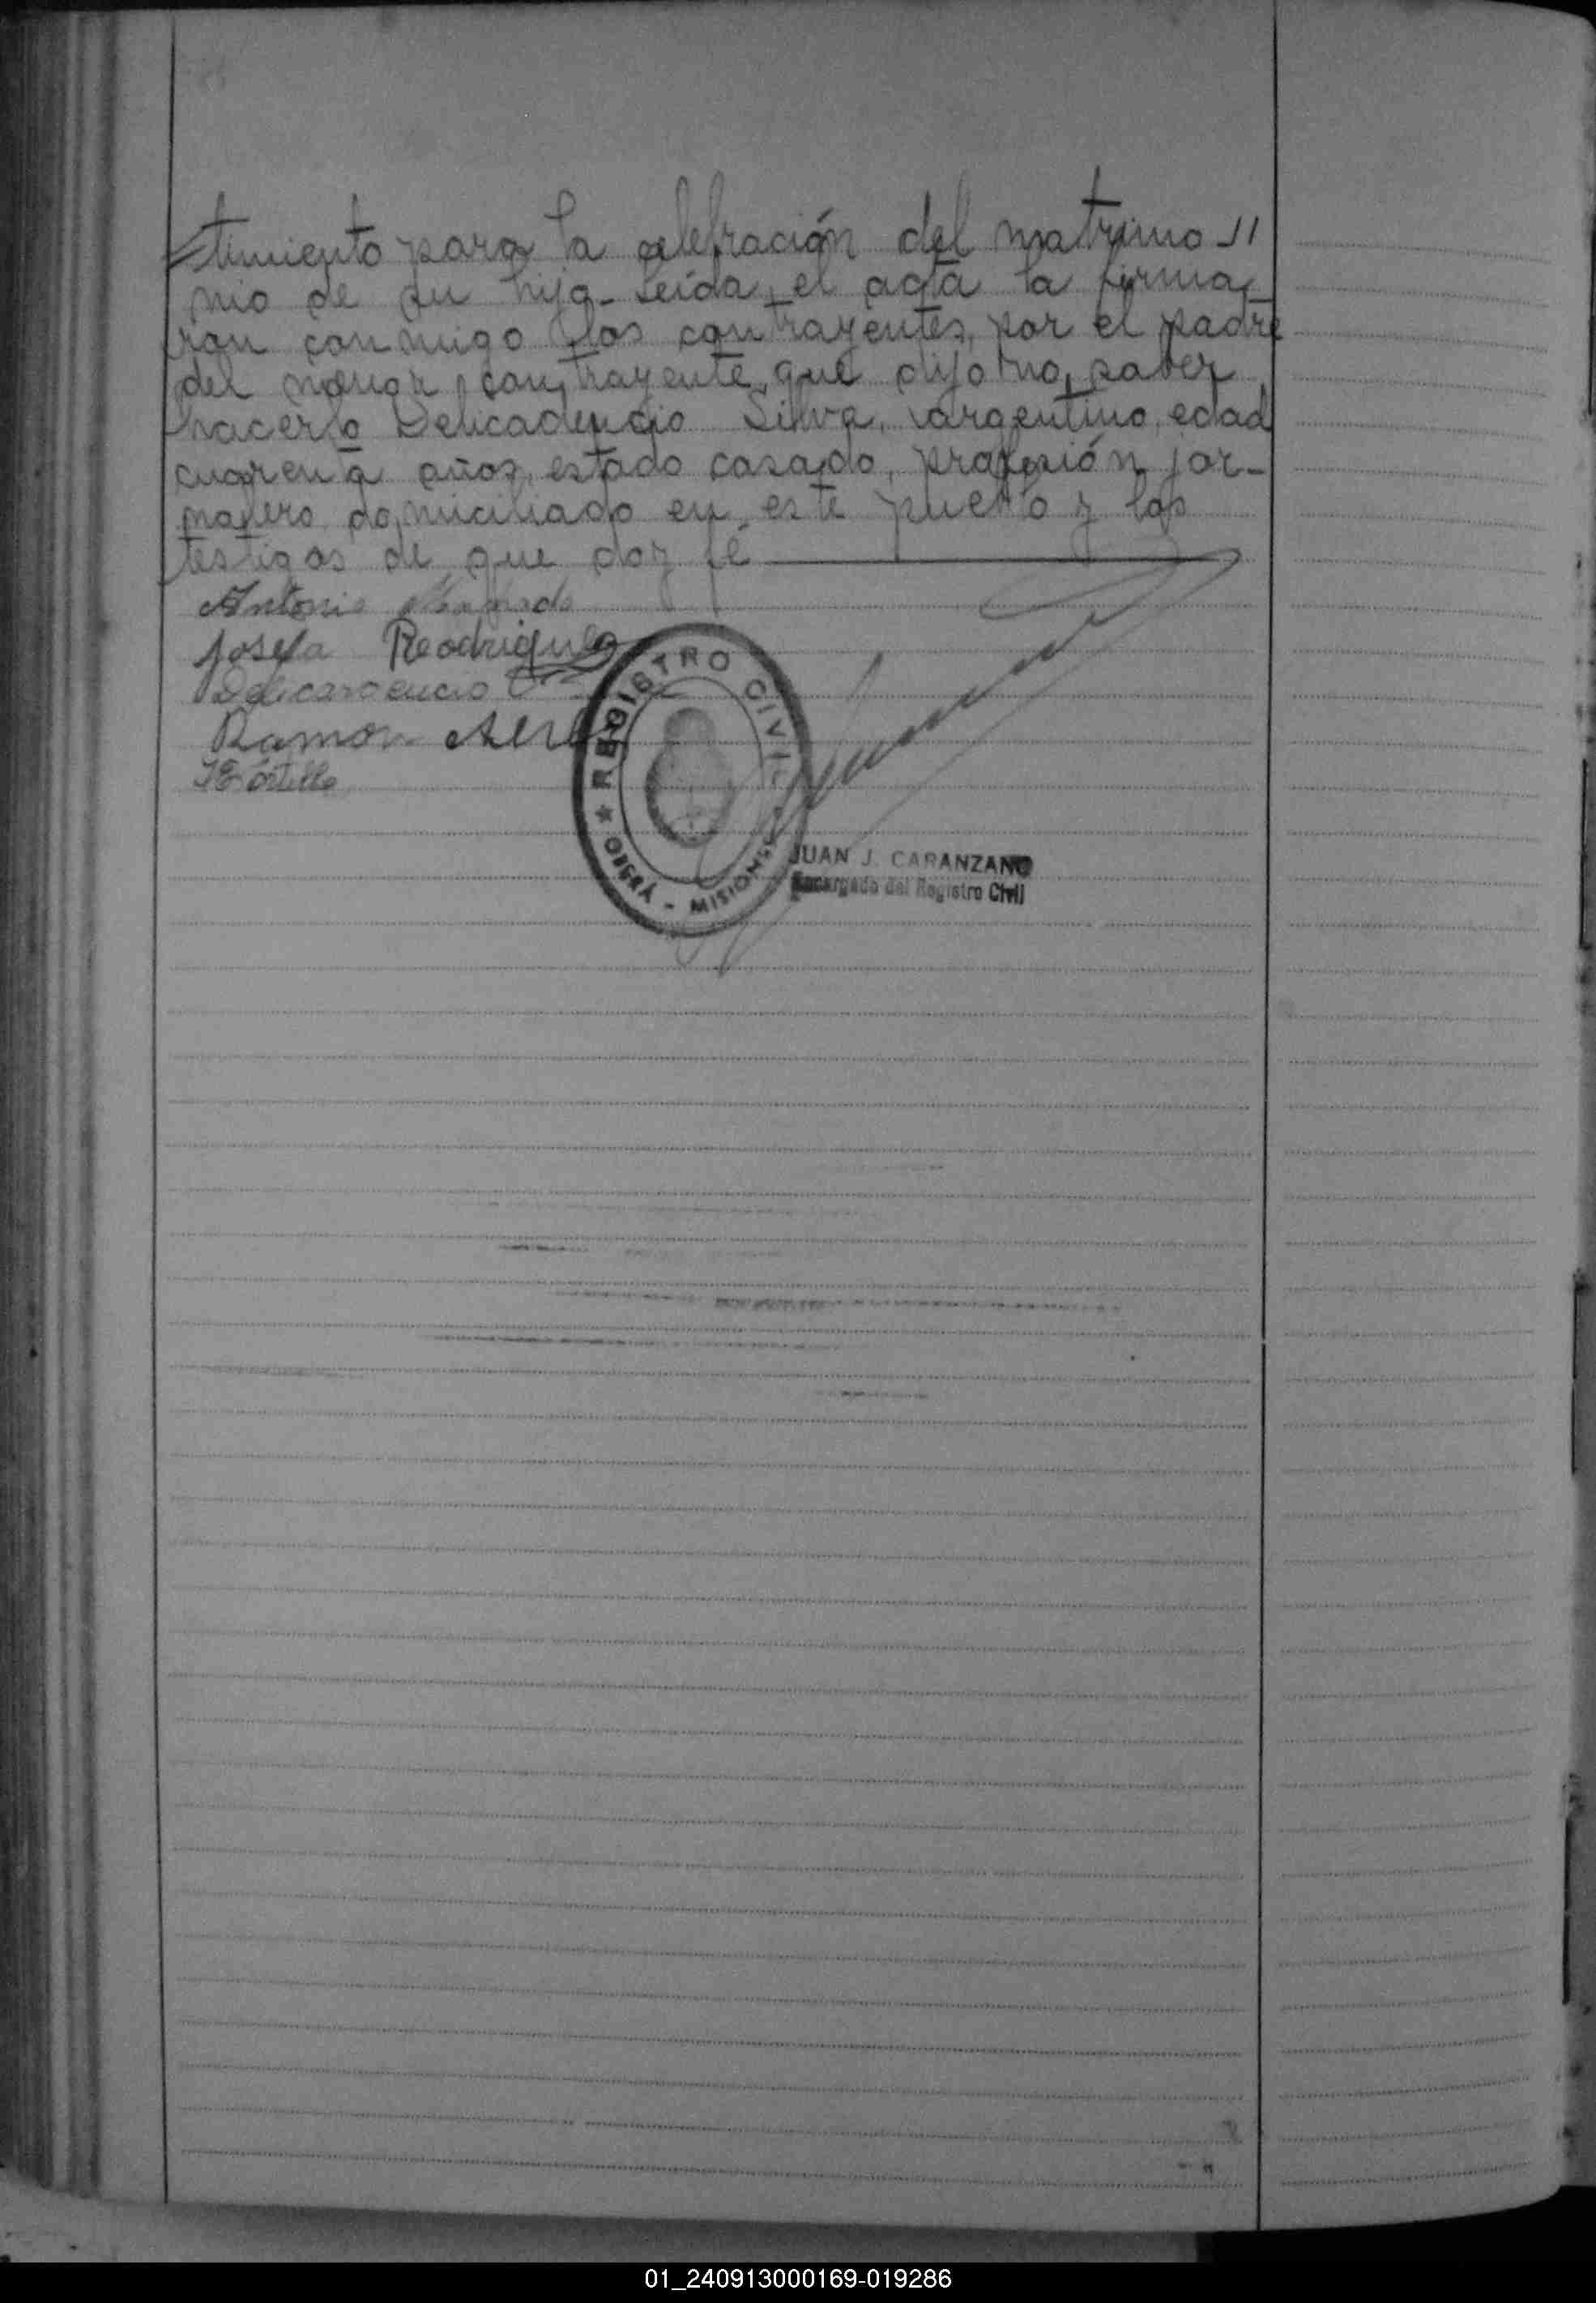 timiento para la celebración del matrimo //
nio de su hija - Leída el acta la firma-
ron conmigo los contrayentes, por el padre
del menor contrayente, que dijo no saber
hacerlo Delicadencio Silva, argentino, edad
cuarenta años, estado casado, profesión jor-
nalero domiciliado en este pueblo y los
testigos de que doy fé
Antonio
Josefa Reodrigues
Ramon
REGISTRO CIVIL
★ OBERÁ - MISIONES
JUAN J. CARANZANO
Encargado del Registro Civil
01_240913000169-019286